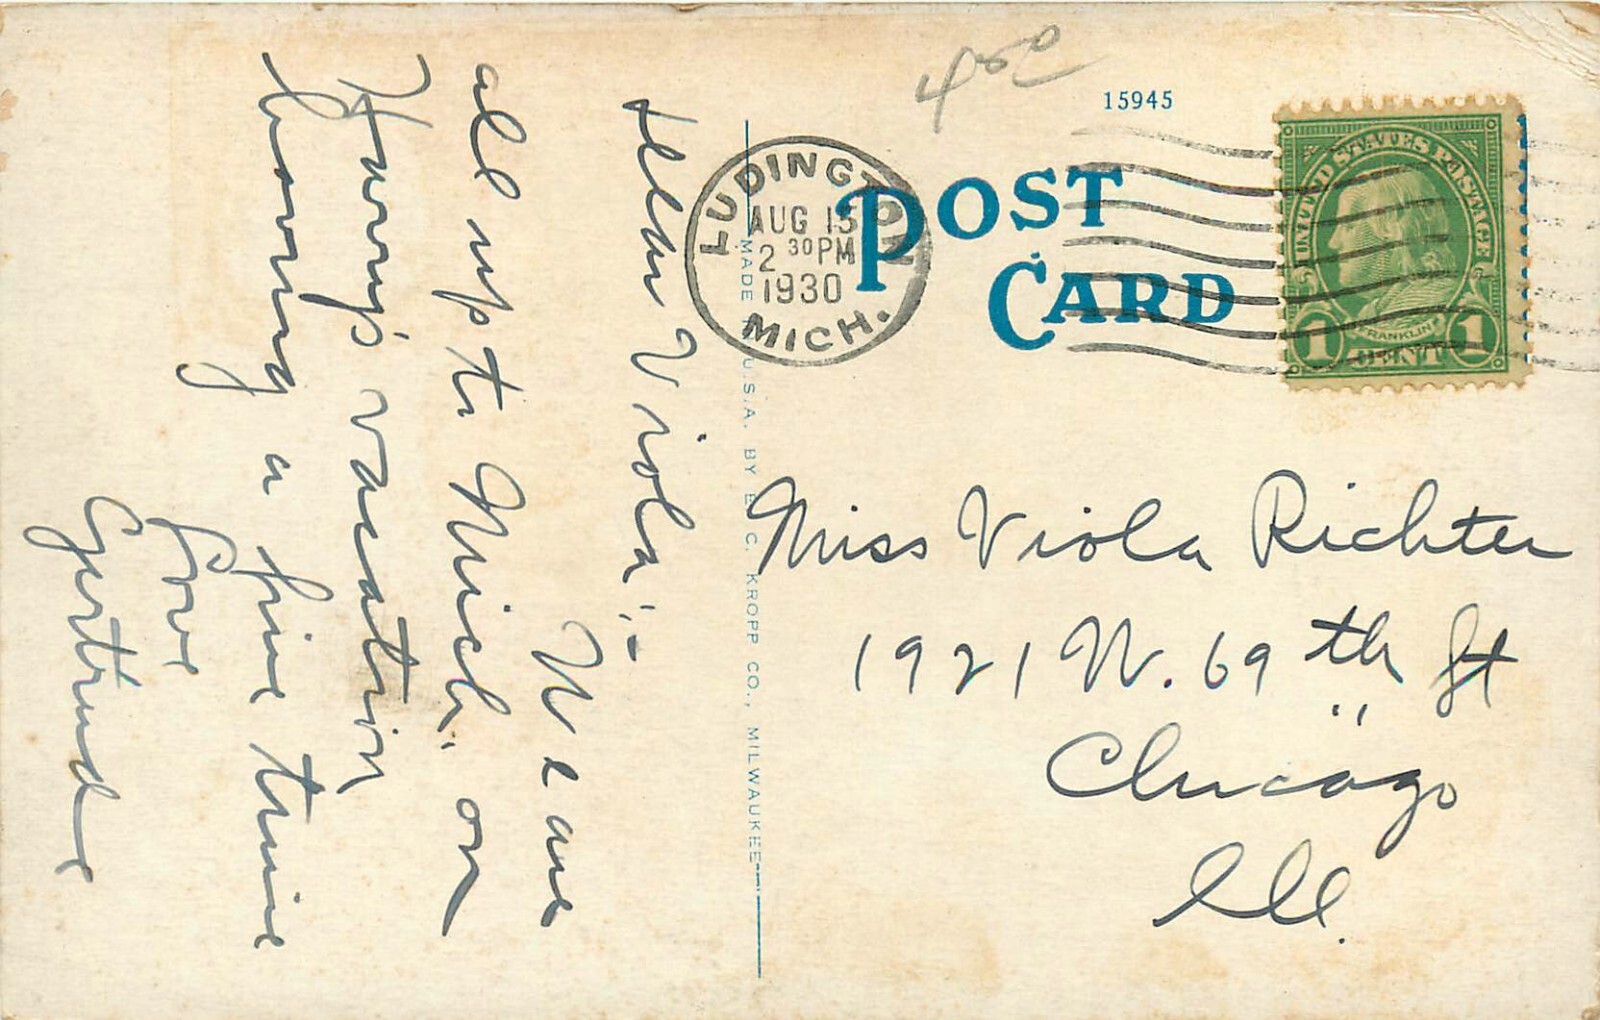 Dear Viola:-
We are
all up to Mich. on
Harry's vacation
having a fine time
Love
Gertrude
MADE IN U.S.A. BY E. C. KROPP CO., MILWAUKEE
LUDINGTON
AUG 15
2 30 PM
1930
MICH.
15945
POST
CARD
UNITED STATES POSTAGE
FRANKLIN
1 CENT 1
Miss Viola Richter
1921 W. 69th St
Chicago
Ill.